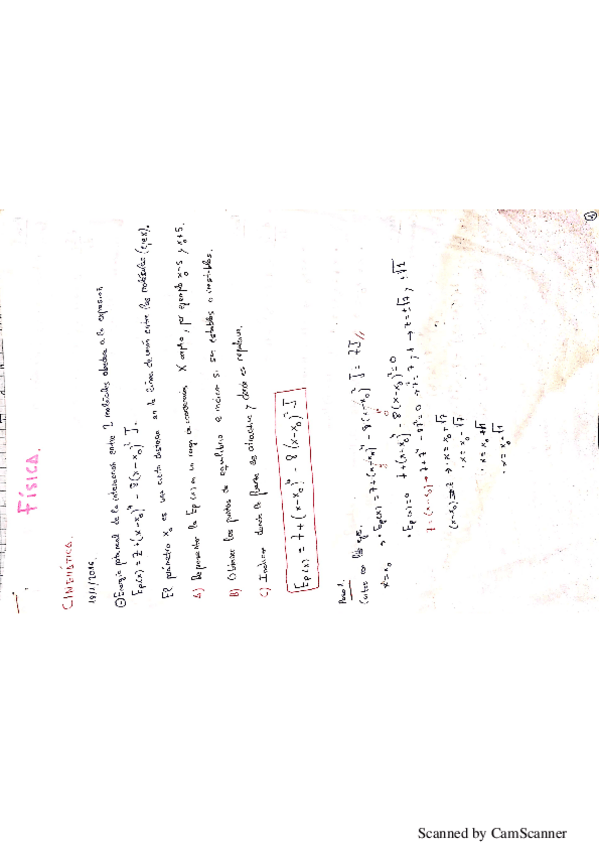 FÍSICA.
CINEMÁTICA.
19/1/2016.
① Energía potencial de la interacción entre 2 moléculas obedece a la expresión
Ep(x) = 7 + (x-x₀)⁴ - 8(x-x₀)² J.
El parámetro x₀ es una cierta distancia en la línea de unión entre las moléculas (eje x).
A) Representar la Ep(x) en un rango x amplio, por ejemplo x₀-5 y x₀+5.
B) Obtener los puntos de equilibrio e indicar si son estables o inestables.
C) Indicar dónde la fuerza es atractiva y dónde es repulsiva.
Ep(x) = 7 + (x-x₀)⁴ - 8(x-x₀)² J
Paso 1.
Cortes con los ejes.
x = x₀ → Ep(x) = 7 + (x₀-x₀)⁴ - 8(x-x₀)² J = 7J //
· Ep(x) = 0 7 + (x-x₀)⁴ - 8(x-x₀)² = 0
(x-x₀) = z → · x = x₀ + √7
· x = x₀ - √7
· x = x₀ + √1
· x = x₀ - √1
Scanned by CamScanner